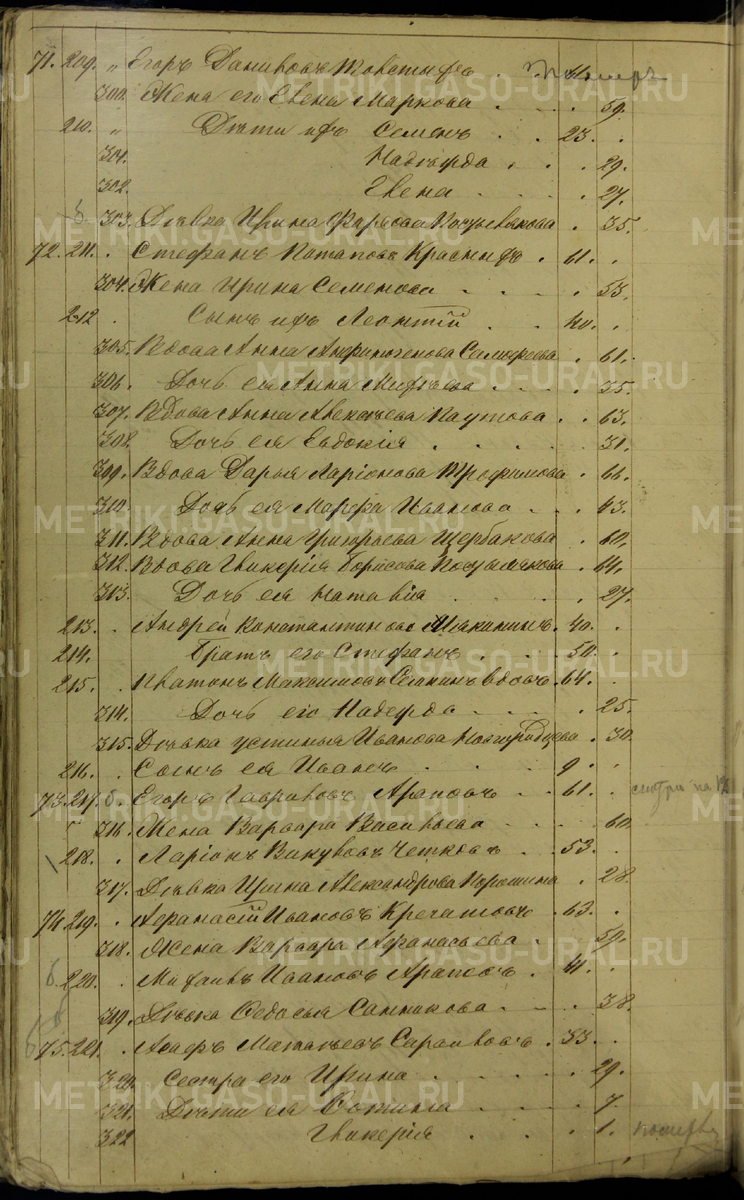 71. 209. „ Егоръ Даниловъ Толстыхъ . . 61. Померъ
300. Жена его Елена Маркова . . . . 59.
210. „ Дѣти ихъ Семенъ . . 23. .
301. Надежда . . . 29.
302. Елена . . . . 27.
303. Дѣвка Ирина Фирсова . 35.
72. 211. . Стефанъ Потаповъ Красныхъ . 61. .
304. Жена Ирина Семенова . . . . 53.
212 . Сынъ ихъ Леонтій . . 40. .
305. Вдова Анна . 61.
306. Дочь ея Анна . . . . 35.
307. Вдова Анна Алексѣева Паутова . . 63.
308. Дочь ея Евдокія . . . . . 31.
309. Вдова Дарья Ларіонова Трофимова . 66.
310. Дочь ея Марфа Иванова . . . 43.
311. Вдова Анна Григорьева Щербакова . 60.
312. Вдова Гликерія Борисова . 64.
313. Дочь ея Наталія . . . . . 27.
213. . Андрей Константиновъ . 40. .
214. Братъ его Стефанъ . . . 50. .
215. . Платонъ Максимовъ вдовъ . 64. .
314. Дочь его Надежда . . . . 25.
315. Дѣвка Устинья Иванова Новгородцева . 30.
216. . Сынъ ея Иванъ . . . . 9 . .
73. 217. б. Егоръ Гавриловъ Араповъ . . 61. . смотри на 12
316. Жена Варвара Васильева . . . 60.
218. . Ларіонъ Викуловъ Четковъ . . 53. .
317. Дѣвка Ирина Александрова Порошина . 28.
74. 219. . Афанасій Ивановъ Кречетовъ . 63. .
318. Жена Варвара Афанасьева . . 59.
б 220. . Михаилъ Ивановъ Араповъ . 41. .
319. Дѣвка Федосья Санникова . . . . 38.
б 75. 221. . Асафъ Матвѣевъ . 33. .
320. Сестра его Ирина . . . . . 29.
321. Дѣти ея . . . . 7.
322 Гликерія . . . . . 1. померла
METRIKI.GASO-URAL.RU